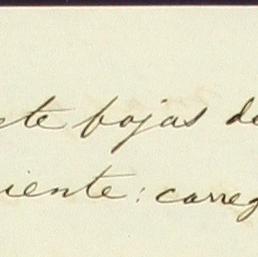 ete fojas de
iente: correg